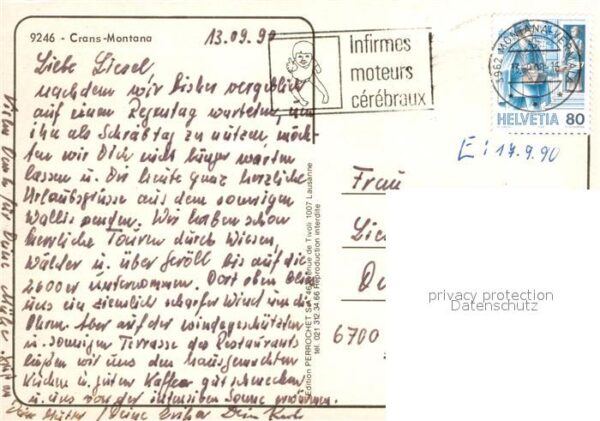 9246 - Crans-Montana
13.09.90
Infirmes
moteurs
cérébraux
1962 MONTANA-VERMALA
HELVETIA 80
E: 17.9.90
Liebe Liesel,
nachdem wir bisher vergeblich
auf einen Regentag warteten, um
ihn als Schreibtag zu nutzen, möch-
ten wir Dich nicht länger warten
lassen u. Dir heute ganz herzliche
Urlaubsgrüsse aus dem sonnigen
Wallis senden. Wir haben schon
herrliche Touren durch Wiesen,
Wälder u. über Geröll bis auf die
2600er unternommen. Dort oben blies
uns ein ziemlich scharfer Wind um die
Ohren. Aber auf der windgeschützten
u. sonnigen Terrasse des Restaurants
ließen wir uns den hausgemachten
Kuchen u. guten Kaffee gut schmecken
u. uns von der intensiven Sonne erwärmen.
Vielen Dank für Deine
Deine Erika Dein
Edition PERROCHET SA 46, avenue de Tivoli 1007 Lausanne
tél. 021 312.34.66 Reproduction interdite
Frau
6700
privacy protection
Datenschutz